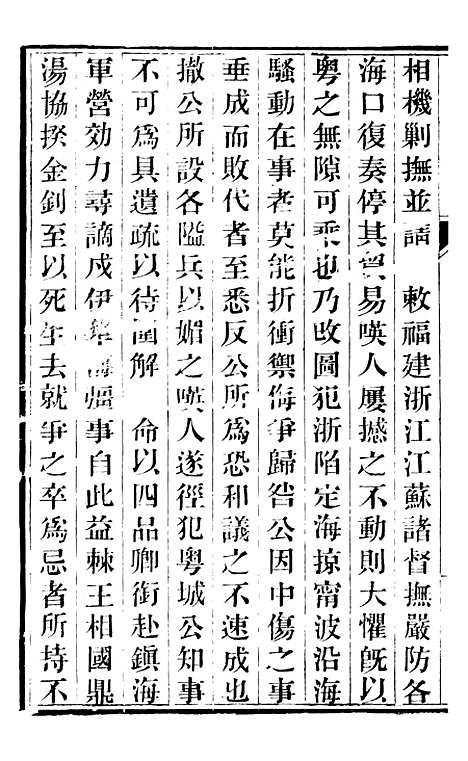 相機剿撫並請　敕福建浙江江蘇諸督撫嚴防各
海口復奏停其貿易嘆人屢撼之不動則大懼旣以
粵之無隙可乘也乃改圖犯浙陷定海掠甯波沿海
騷動在事者莫能折衝禦侮爭歸咎公因中傷之事
垂成而敗代者至悉反公所為恐和議之不速成也
撤公所設各隘兵以媚之嘆人遂徑犯粵城公知事
不可為具遺疏以待圍解　命以四品卿銜赴鎭海
軍營効力尋謫戍伊犂海疆事自此益棘王相國鼎
湯協揆金釗至以死生去就爭之卒為忌者所持不